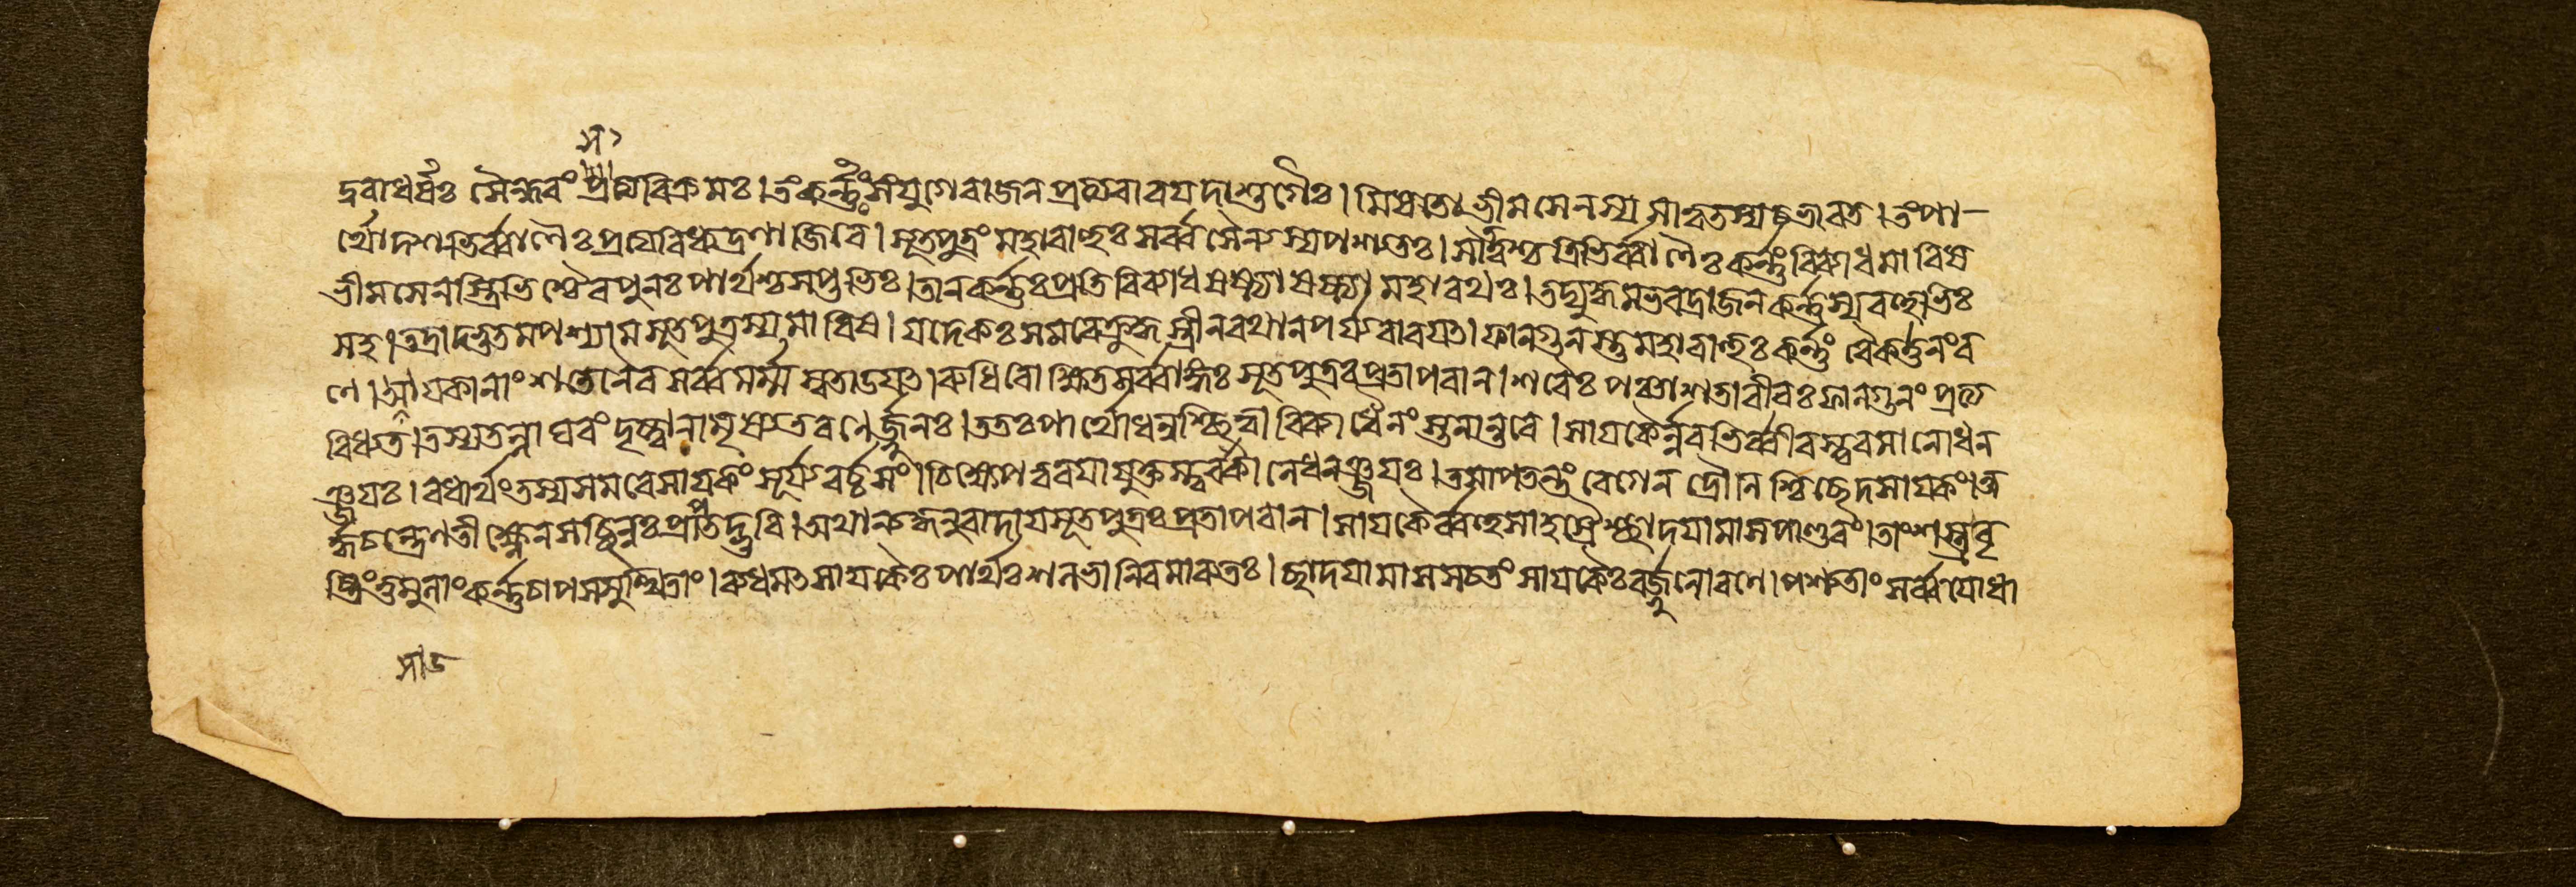 সা
দুরাধর্ষঃ সৈন্ধবং প্রায়বিক্রমঃ।তং কর্ন্নং সংযুগেরাজন প্রত্যবারযদাশুগৈঃ।মিষতোভীমসেনস্য সাত্বতস্যচভারত।তংপা-
র্থোদশভির্ব্বাণৈঃপ্রত্যবিধ্যদ্রণাজিরে।সূতপুত্রং মহাবাহুঃ সর্ব্বসৈন্যস্যপশ্যতঃ।সাত্বতশ্চত্রিভির্ব্বাণৈঃকর্ন্নংবিব্যাধমারিষ
ভীমসেনস্ত্রিভিশ্চৈবপুনঃপার্থশ্চসপ্তভিঃ।তানকর্ন্নঃপ্রতিবিব্যাধষষ্ট্যাষষ্ট্যা মহারথঃ।তদ্যুদ্ধমভবদ্রাজনকর্ন্নস্যবহুভিঃ
সহ।তত্রাদ্ভুতমপশ্যামসূতপুত্রস্যমারিষ।যদেকঃসমরেক্রুদ্ধস্ত্রীনরথানপর্য্যবারযত।ফাল্গুনস্তুমহাবাহুঃকর্ন্নং বৈকর্ত্তনংর
ণে।সাযকানাং শতেনৈবসর্ব্বমর্ম্মস্বতাডযত।রুধিরোক্ষিতসর্ব্বাঙ্গঃ সূতপুত্রঃপ্রতাপবান।শরৈঃ পঞ্চাশতাবীরঃফাল্গুনং প্রত্য
বিধ্যত।তস্যতল্লাঘবংদৃষ্ট্বানামৃষ্যতরণের্জ্জুনঃ।ততঃপার্থোধনুশ্ছিত্বাবিব্যাধৈনংস্তনান্তরে।সাযকৈর্ন্নবভির্ব্বীরস্ত্বরমানোধন
ঞ্জযঃ।বধার্থংতস্যসমরেসাযকংসূর্য্যবর্চ্চসং।চিক্ষেপত্বরযাযুক্তস্ত্বরকালেধনঞ্জযঃ।তমাপতন্তংবেগেনদ্রৌনিশ্চিচ্ছেদসাযকং।অ
র্দ্ধচন্দ্রেণতীক্ষ্নেনসচ্ছিন্নঃপ্রাপতদ্ভুবি।অথান্যদ্ধনুরাদাযসূতপুত্রঃপ্রতাপবান।সাযকৈর্ব্বহুসাহস্রৈশ্ছাদযামাসপাণ্ডবং।তাংশস্ত্রবৃ
ষ্টিংতুমুলাংকর্ন্নচাপসমুত্থিতাং।ব্যধমৎসাযকৈঃপার্থঃশলভানিবমারুতঃ।ছাদযামাসসচতংসাযকৈঃর্জ্জুনোরণে।পশ্যতাংসর্ব্বযোধা